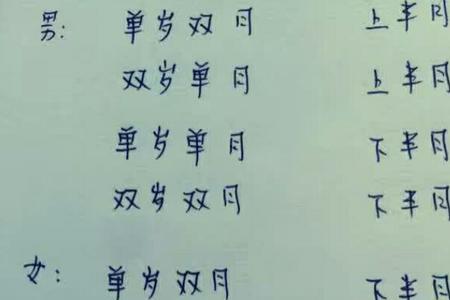 男: 单岁双月 上半月
双岁单月 上半月
单岁单月 下半月
双岁双月 下半月
女: 单岁双月 下半月